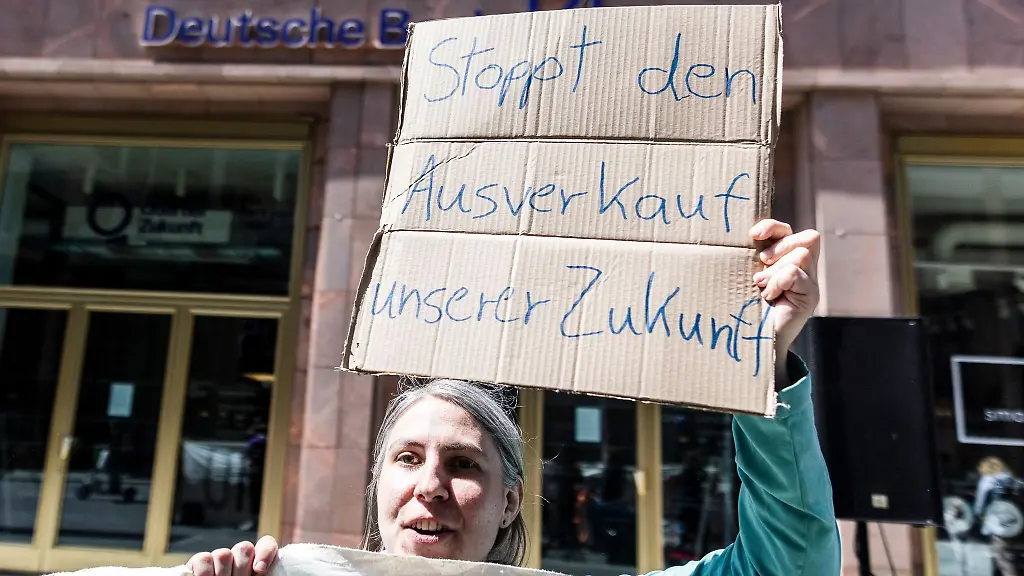 Deutsche B
Stoppt den
Ausverkauf
unserer Zukunft
Zukunft
smo